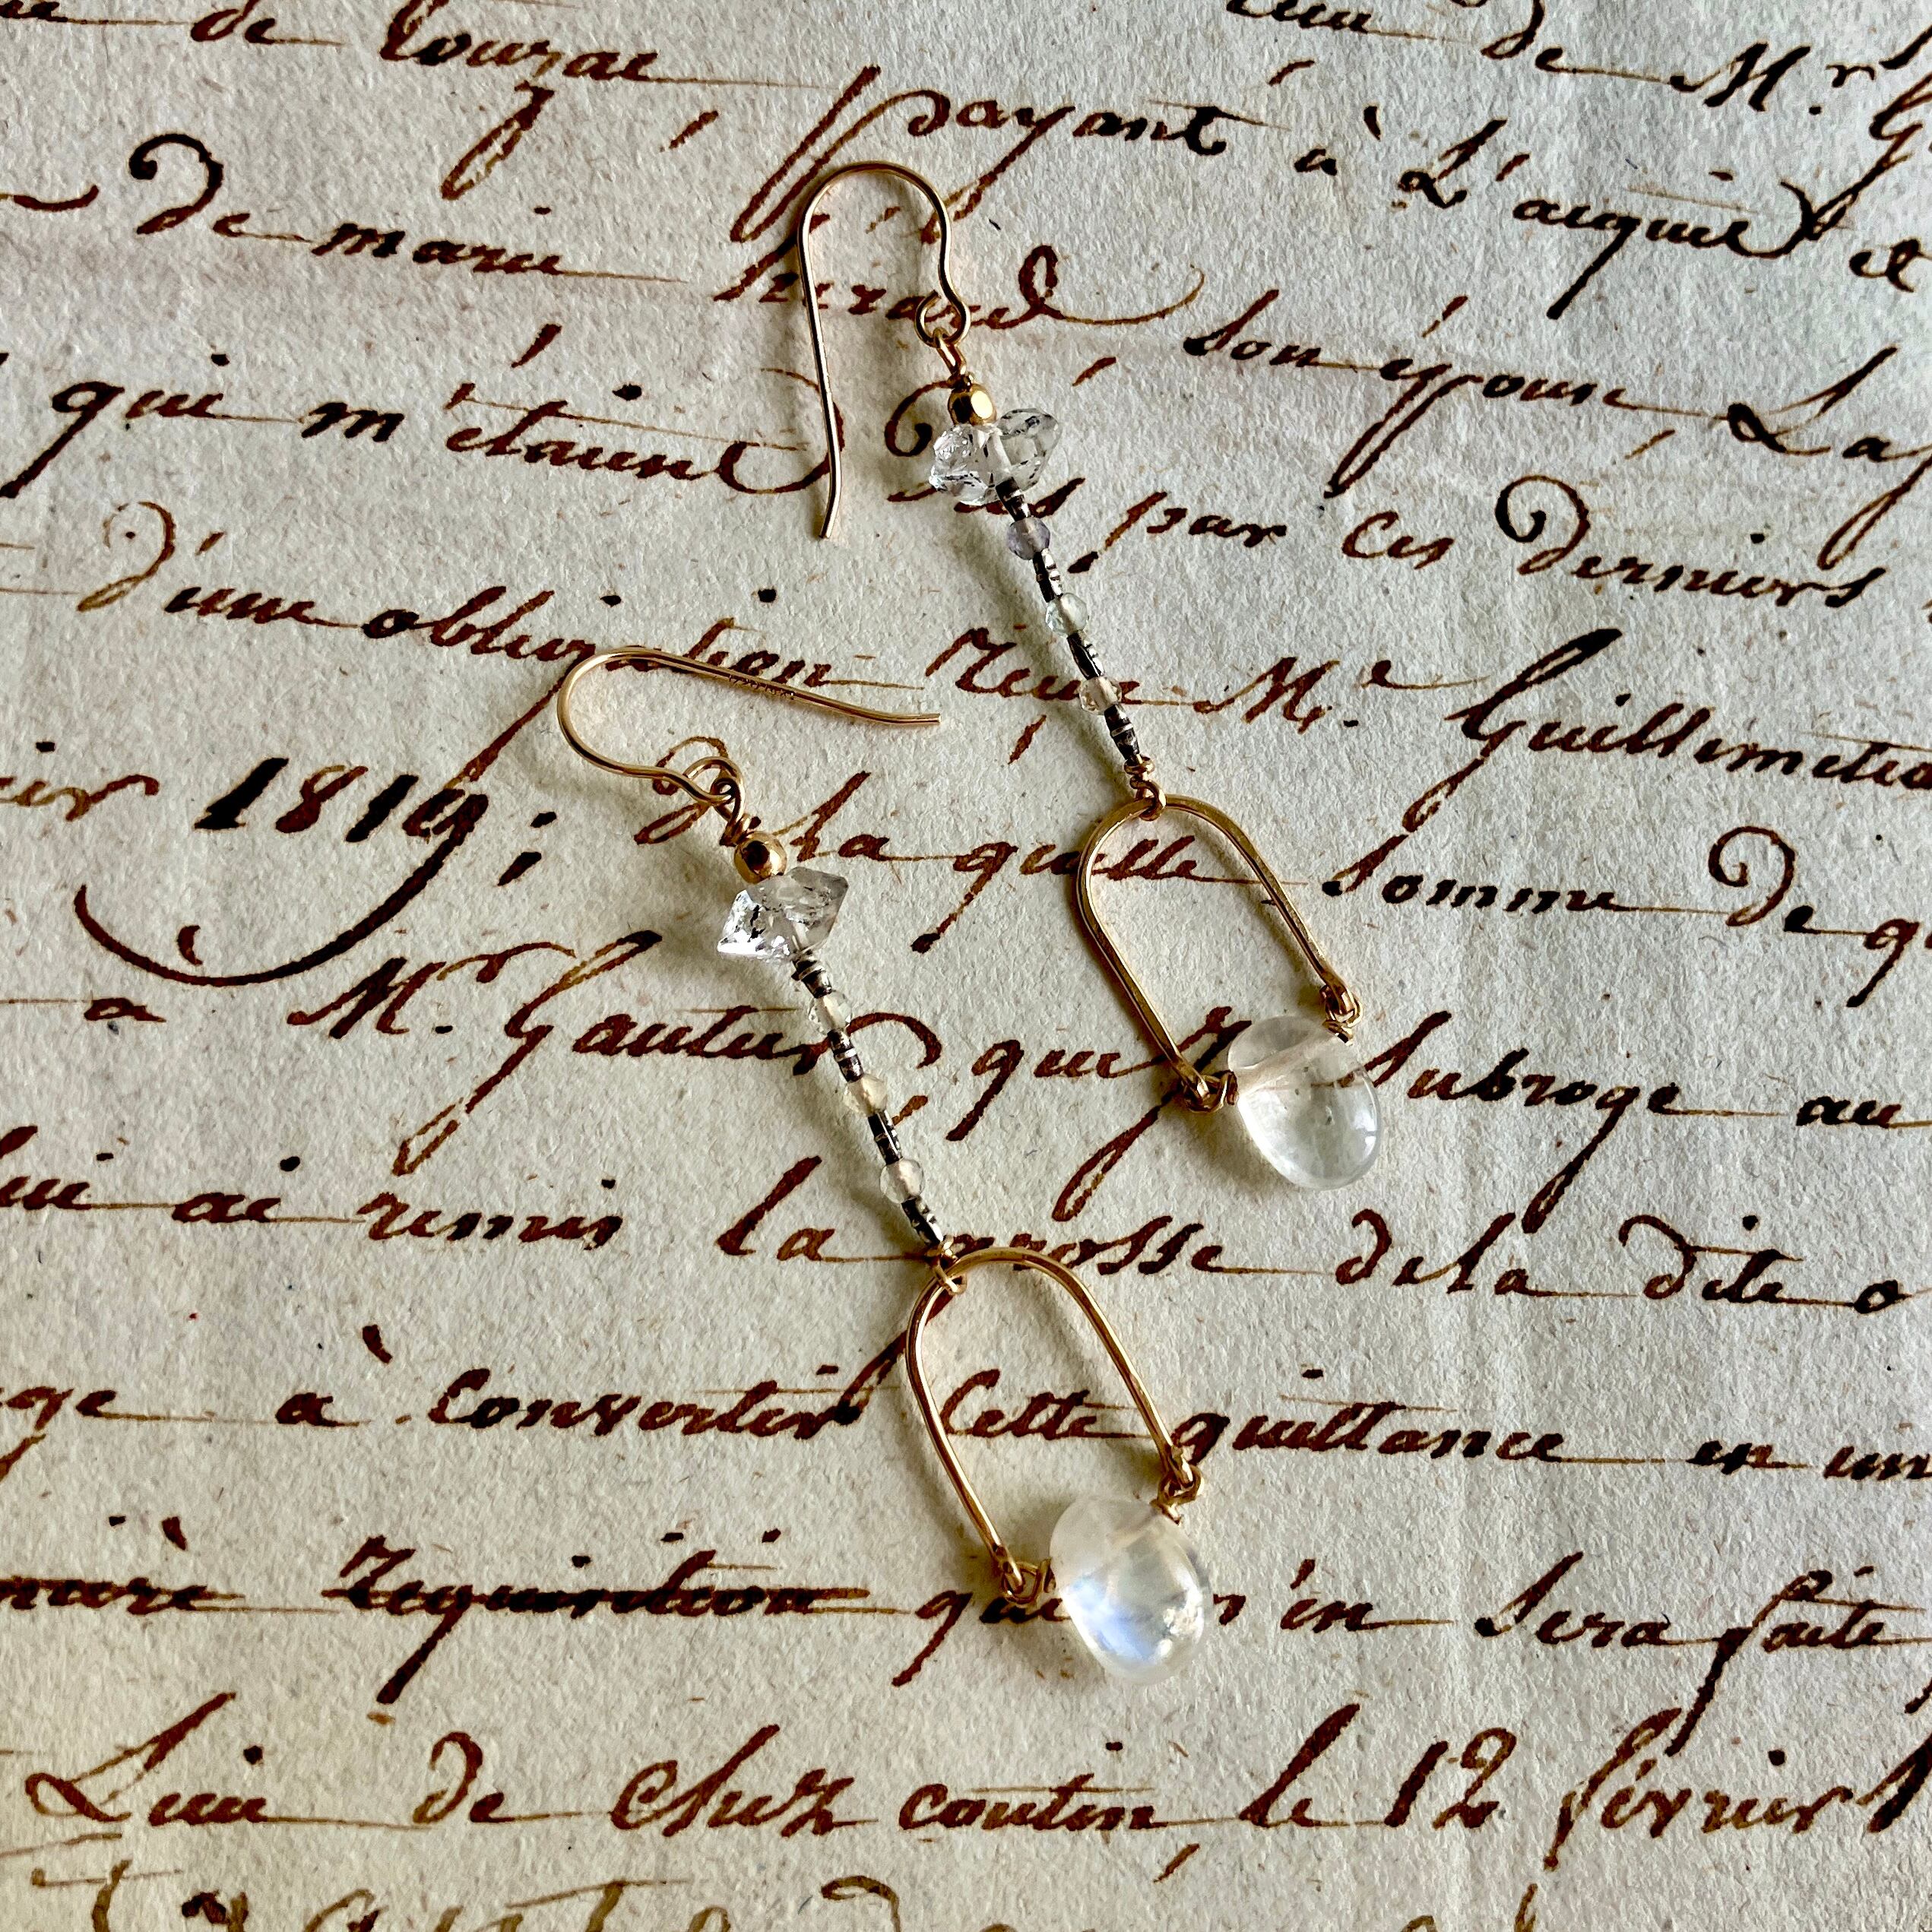 de Louzac, payant à L'acquit et
de marie herard son épouse, La
qui m'étaient dus par ces derniers
d'une obligation reçue Me Guillimeteau
1819; de la quelle somme de
a Mr. Gautier qui subroge au
lui ai remis la grosse de la dite o
à convertir cette quittance en un
requisition qui m'en sera faite
Lieu de chez coutin, le 12 février 1